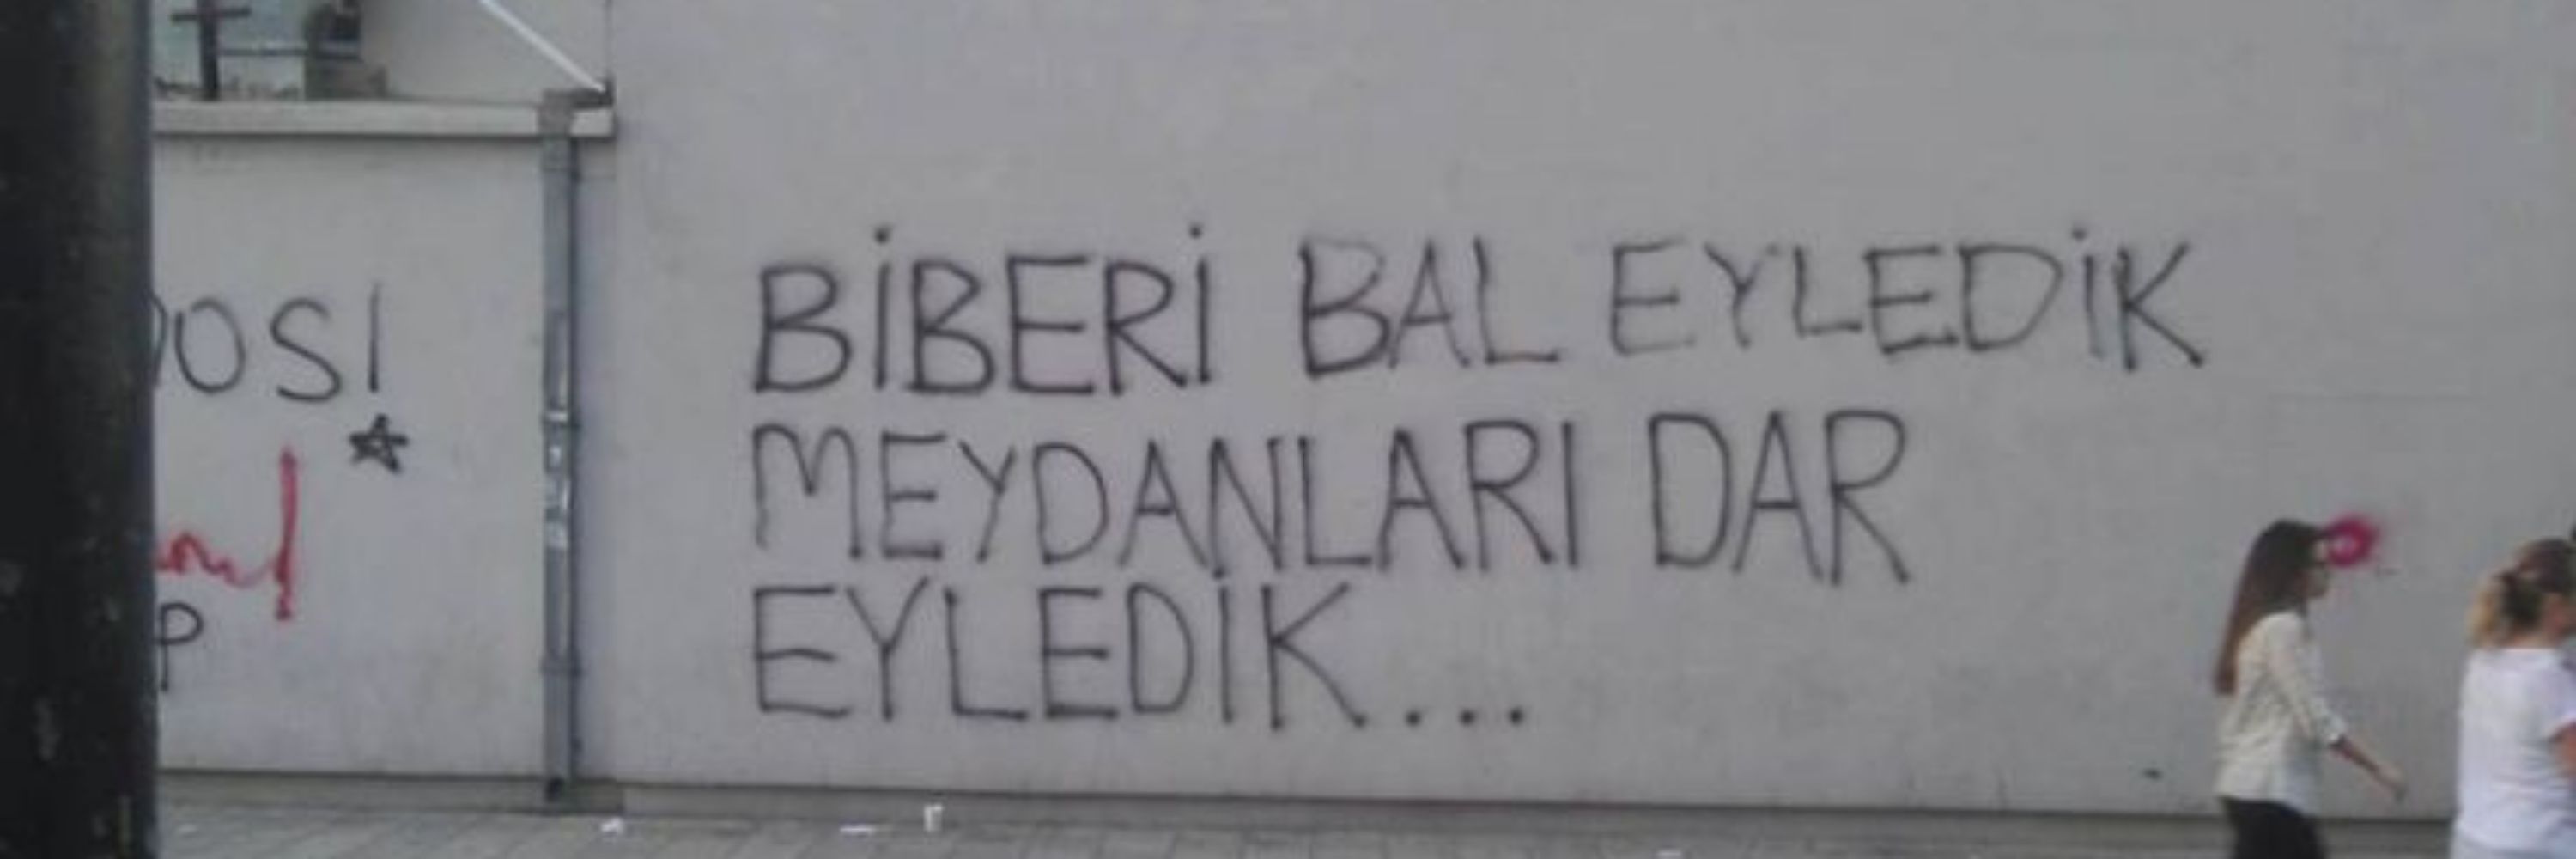 BİBERİ BAL EYLEDİK
MEYDANLARI DAR
EYLEDİK...